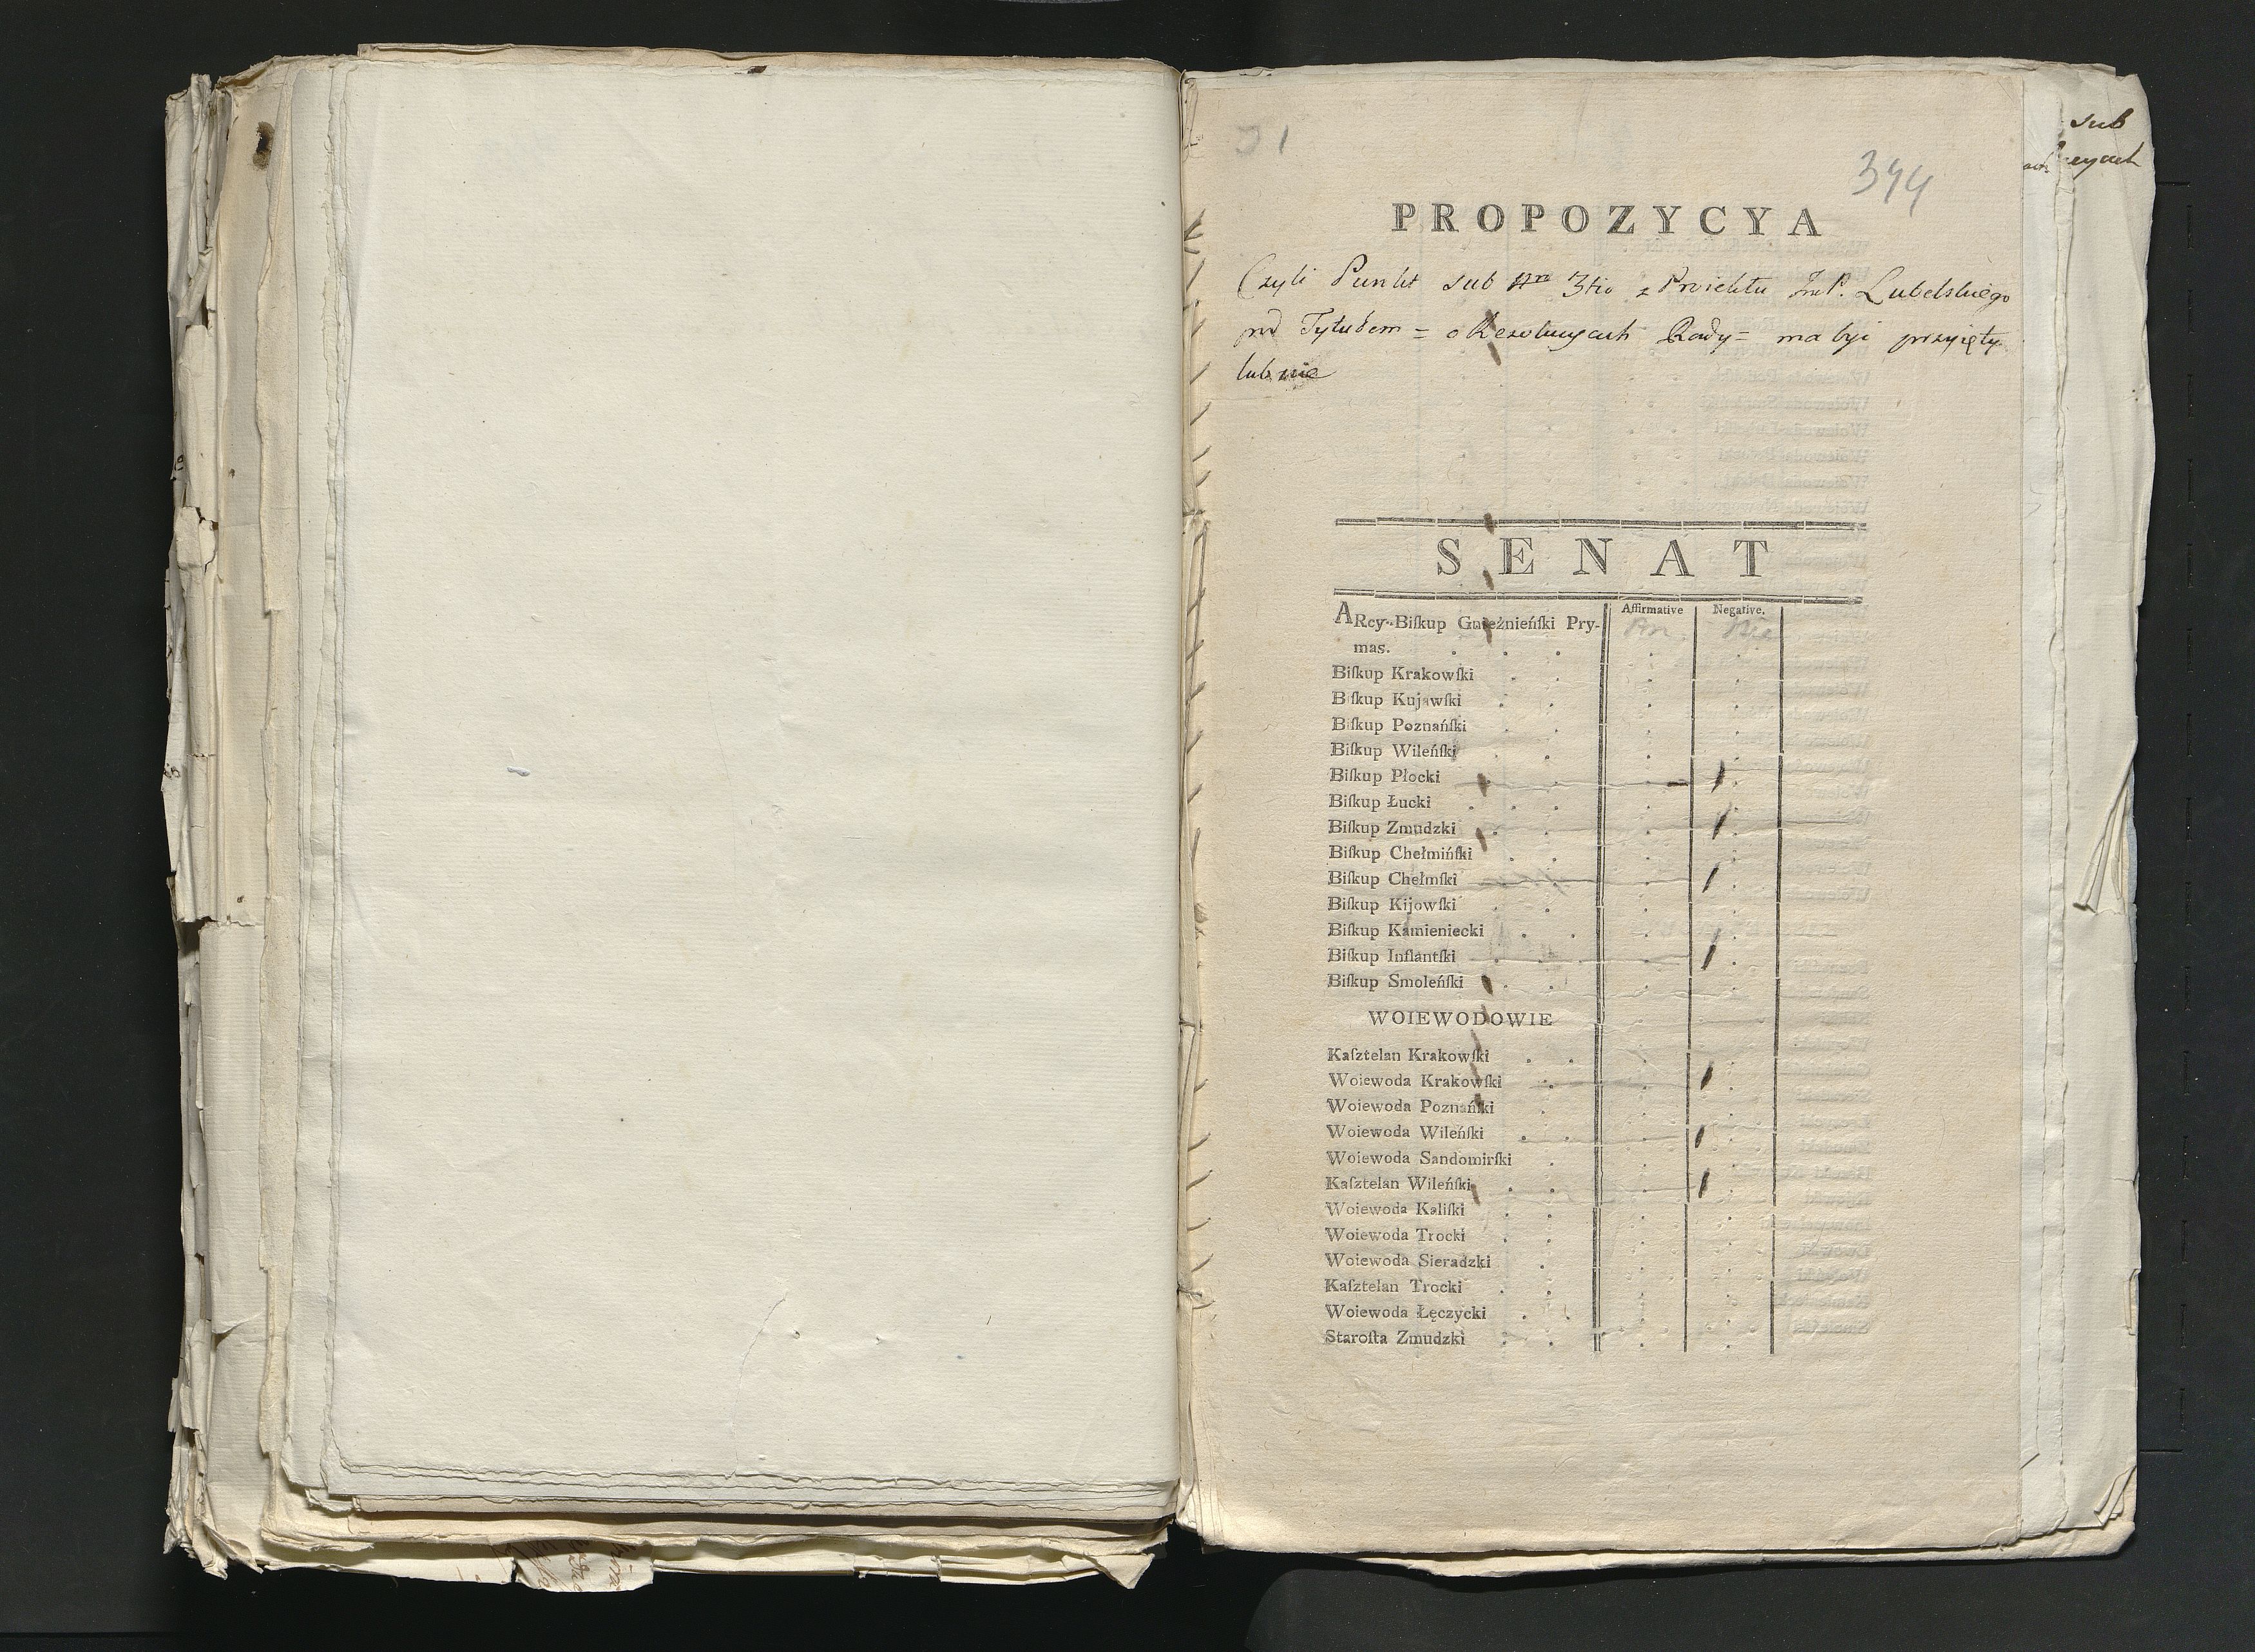 344
PROPOZYCYA
Czyli Punkt sub Nro 3tio z Proiektu JmP. Lubelskiego
pod Tytułem = o Rezolucyach Rady = ma być przyięty
lub nie
SENAT
Affirmative Negative.
ARcy-Biſkup Gnieźnieńſki Pry-
mas.
Biſkup Krakowſki
Biſkup Kujawſki
Biſkup Poznańſki
Biſkup Wileńſki
Biſkup Płocki
Biſkup Łucki
Biſkup Zmudzki
Biſkup Chełmińſki
Biſkup Chełmſki
Biſkup Kijowſki
Biſkup Kamieniecki
Biſkup Inflantſki
Biſkup Smoleńſki
WOIEWODOWIE
Kaſztelan Krakowſki
Woiewoda Krakowſki
Woiewoda Poznańſki
Woiewoda Wileńſki
Woiewoda Sandomirſki
Kaſztelan Wileńſki
Woiewoda Kaliſki
Woiewoda Trocki
Woiewoda Sieradzki
Kaſztelan Trocki
Woiewoda Łęczycki
Staroſta Zmudzki
sub